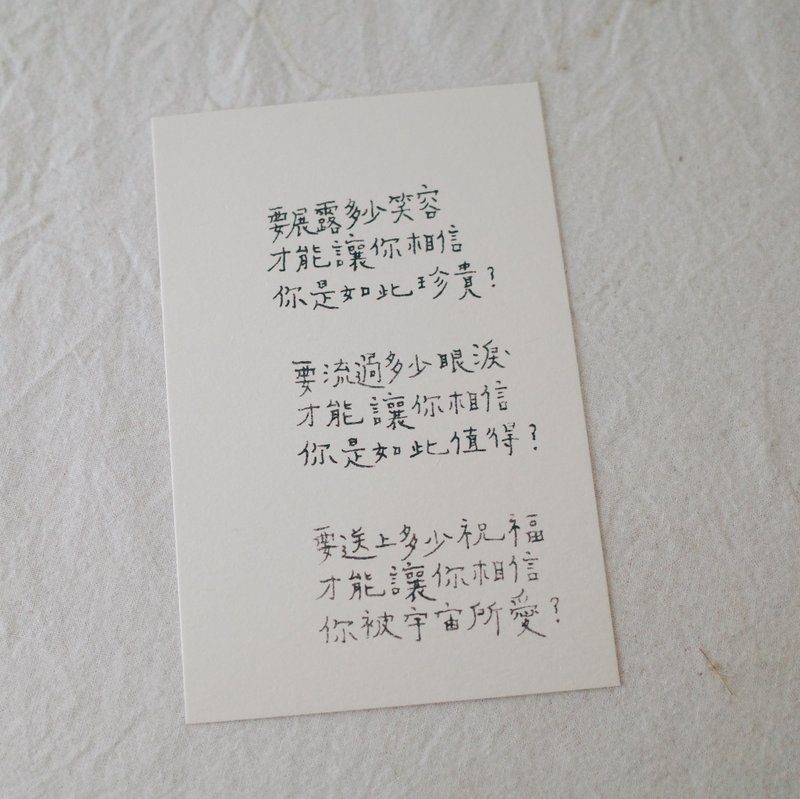 要展露多少笑容
才能讓你相信
你是如此珍貴?
要流過多少眼淚
才能讓你相信
你是如此值得?
要送上多少祝福
才能讓你相信
你被宇宙所愛?